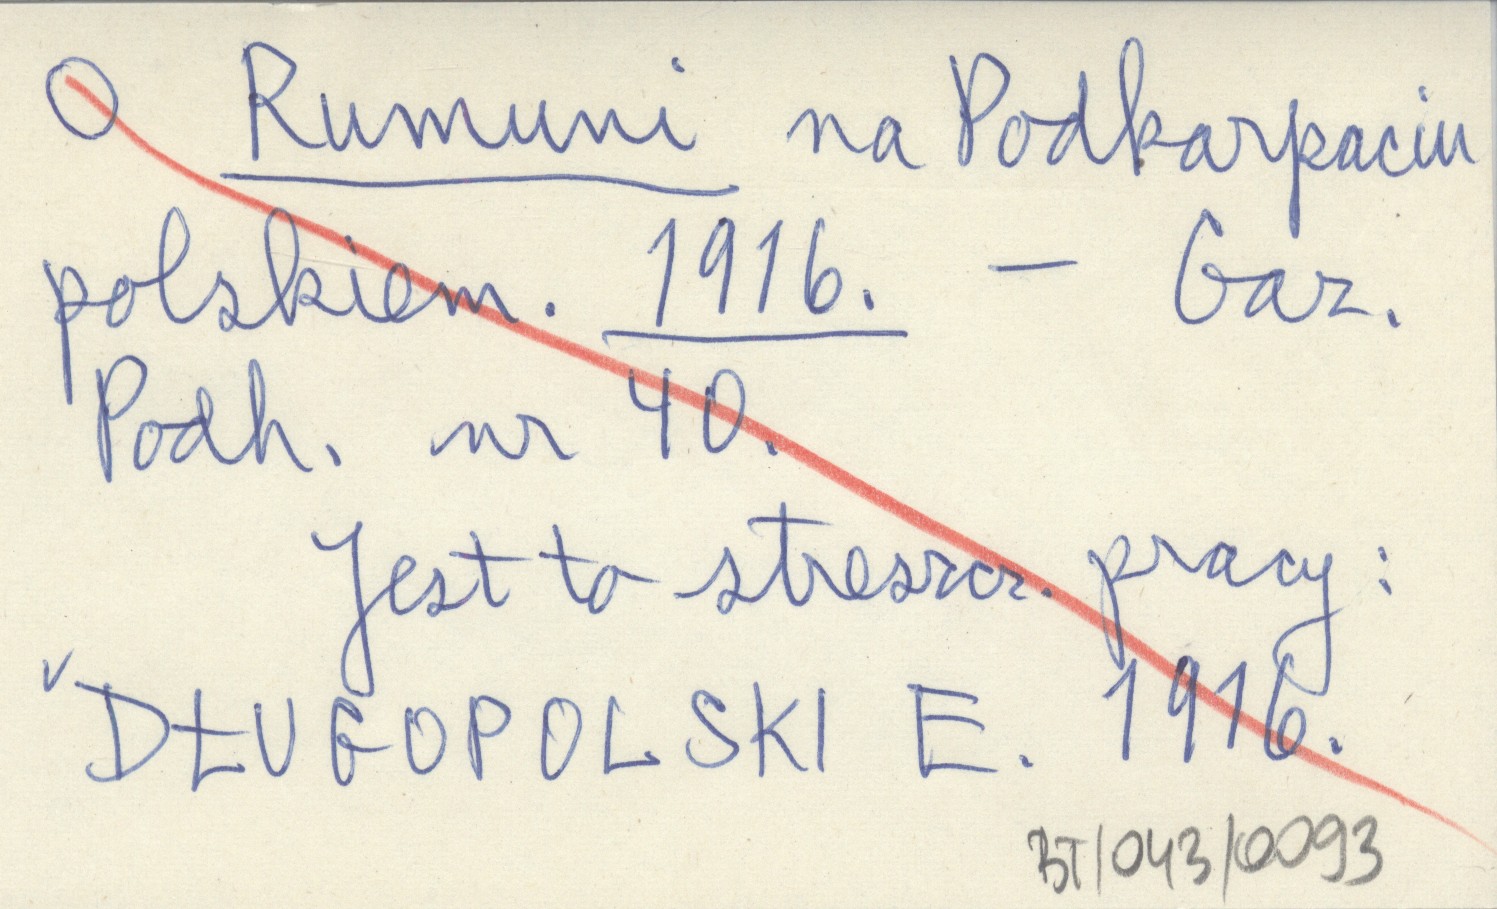 O Rumuni na Podkarpaciu
polskiem. 1916. — Gaz.
Podh. nr 40.
Jest to streszcz. pracy:
DŁUGOPOLSKI E. 1916.
BT/043/0093